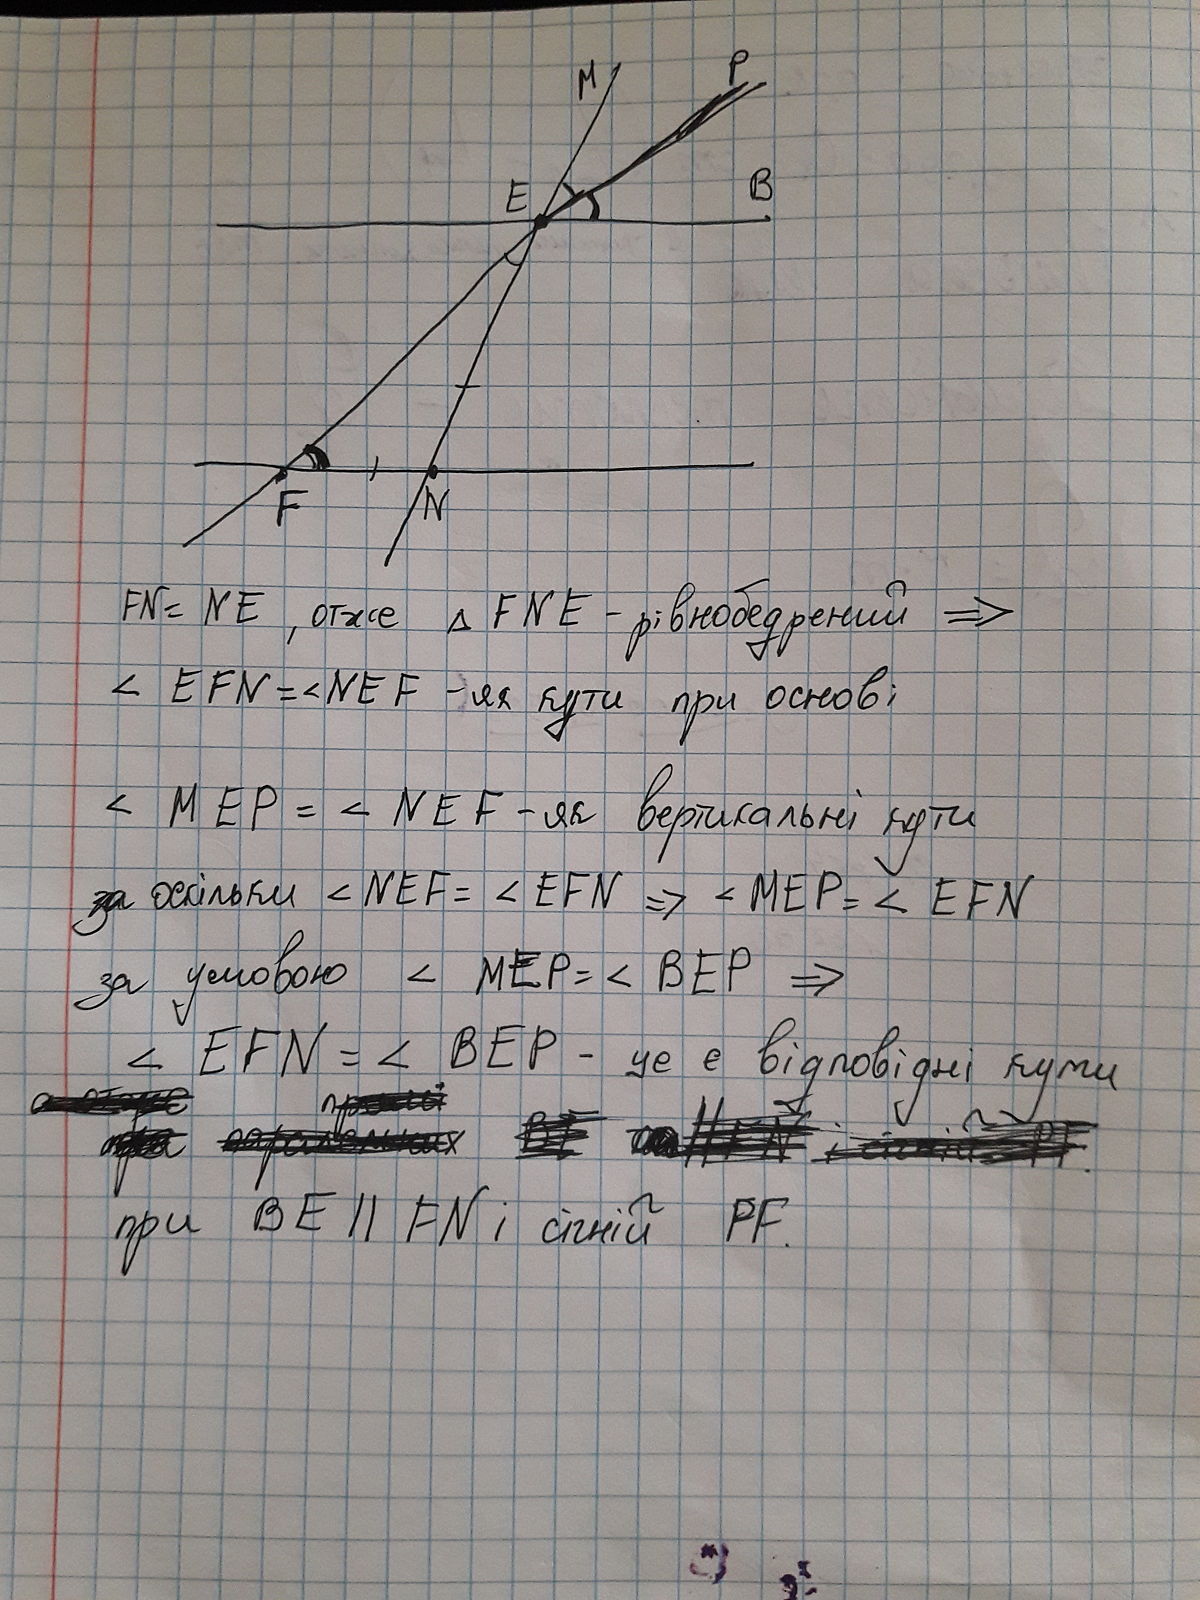 M
P
E
B
F
N
FN = NE, отже △ FNE - рівнобедрений ⇒
< EFN = < NEF - як кути при основі
< MEP = < NEF - як вертикальні кути
за оскільки < NEF = < EFN ⇒ < MEP = < EFN
за умовою < MEP = < BEP ⇒
< EFN = < BEP - це є відповідні кути
при BE || FN і січній PF.